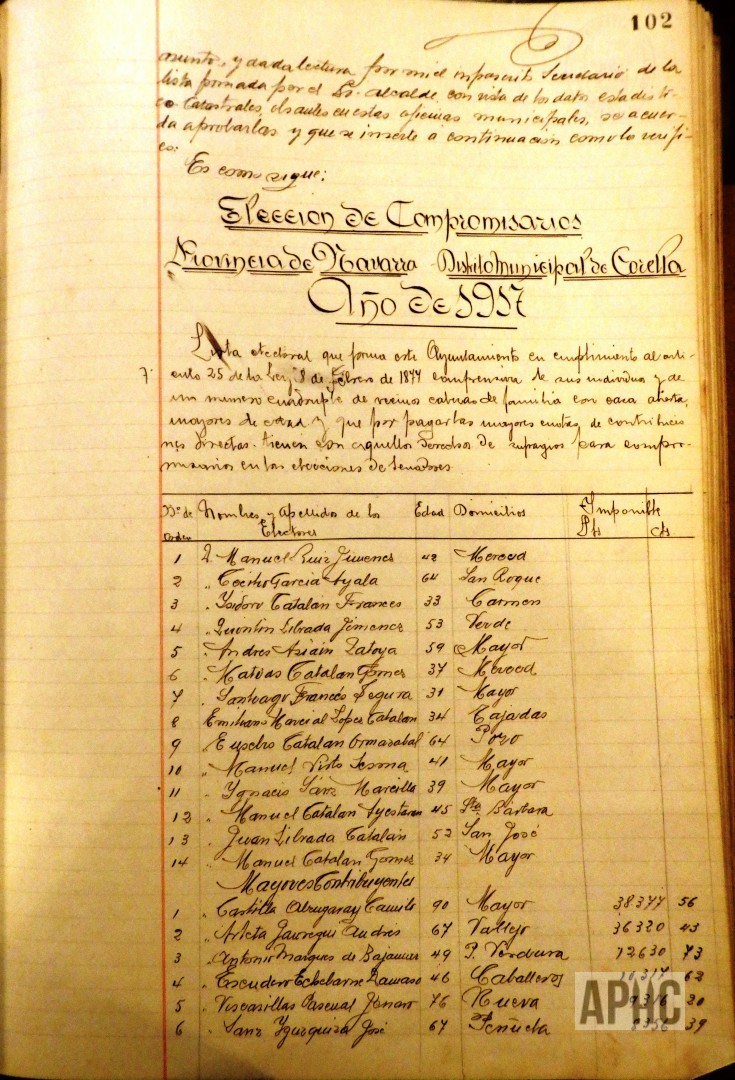 102
asunto, y dada lectura por mi el infrascrito Secretario de la
lista formada por el Sr. alcalde, con vista de los datos estadisti-
co Catastrales, obrantes en estas oficinas municipales, se acuer-
da aprobarlas y que se inserte a continuación como lo verifi-
co:
Es como sigue:
Eleccion de Compromisarios
Provincia de Navarra Distrito Municipal de Corella
Año de 1917
Lista electoral que forma este Ayuntamiento en cumplimiento al arti-
culo 25 de la Ley 8 de Febrero de 1877 comprensiva de sus individuos y de
un numero cuadruple de vecinos cabezas de familia con casa abierta,
mayores de edad y que por pagar las mayores cuotas de contribucio
nes directas tienen con aquellos derechos de sufragios para compro-
misarios en las elecciones de senadores
Nº de orden Nombres y Apellidos de los Electores Edad Domicilios Imponible Pts cts
1 D. Manuel Ruiz Jimenez 42 Merced
2 " Garcia Ayala 64 San Roque
3 " Isidoro Catalan Frances 33 Carmen
4 " Quintin Librada Jimenez 53 Verde
5 " Andres Asiain Zatoya 59 Mayor
6 " Matias Catalan Gomez 37 Merced
7 " Santiago Francés Segura 31 Mayor
8 Emiliano Marcial López Catalan 34 Cajadas
9 " Eusebio Catalan Ormazabal 64 Pozo
10 " Manuel Virto Sesma 41 Mayor
11 " Ygnacio Sánz Marcilla 39 Mayor
12 " Manuel Catalan Ayestaran 45 Sta Bárbara
13 " Juan Librada Catalán 52 San José
14 " Manuel Catalan Gomez 34 Mayor
Mayores Contribuyentes
1 " Castilla Camilo 90 Mayor 38.377 56
2 " Arteta Jauregui Andres 67 Vallejo 36320 43
3 " Antonio Marques de Bajamar 49 P. Verdura 12630 73
4 " Escudero Echebarne Damaso 46 Caballeros 62
5 " Viscasillas Pascual Jenaro 76 Nueva 9316 20
6 " Sanz Yzurquiza José 67 Peñuela 39
APHC